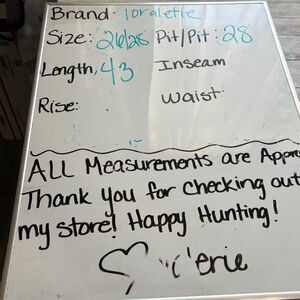 Brand: Toralette
Size: 26/28 Pit/Pit: 28
Length: 43 Inseam
Rise: Waist:
ALL Measurements are Approx
Thank you for checking out
my store! Happy Hunting!